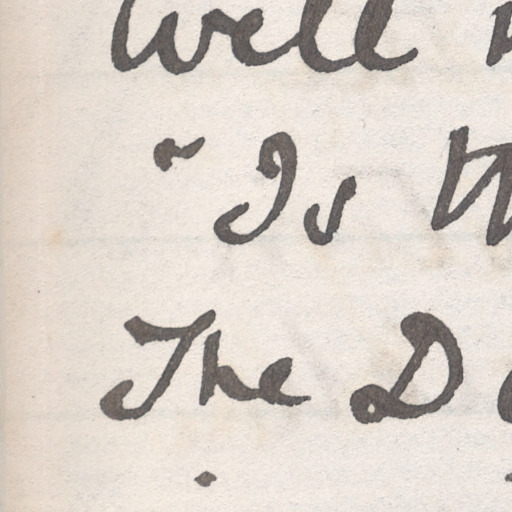 Well
"Is
The D